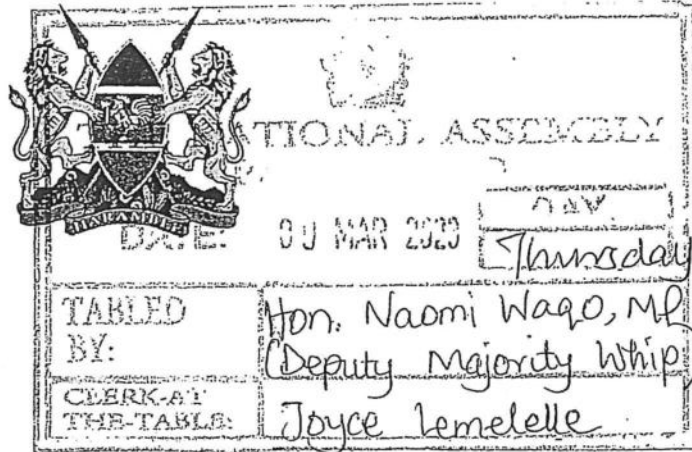 NATIONAL ASSEMBLY
HARAMBEE
DATE: MAR
DAY
Thursday
TABLED BY:
Hon. Naomi Waqo, MP
(Deputy Majority Whip
CLERK-AT
THE-TABLE:
Joyce Lemelelle